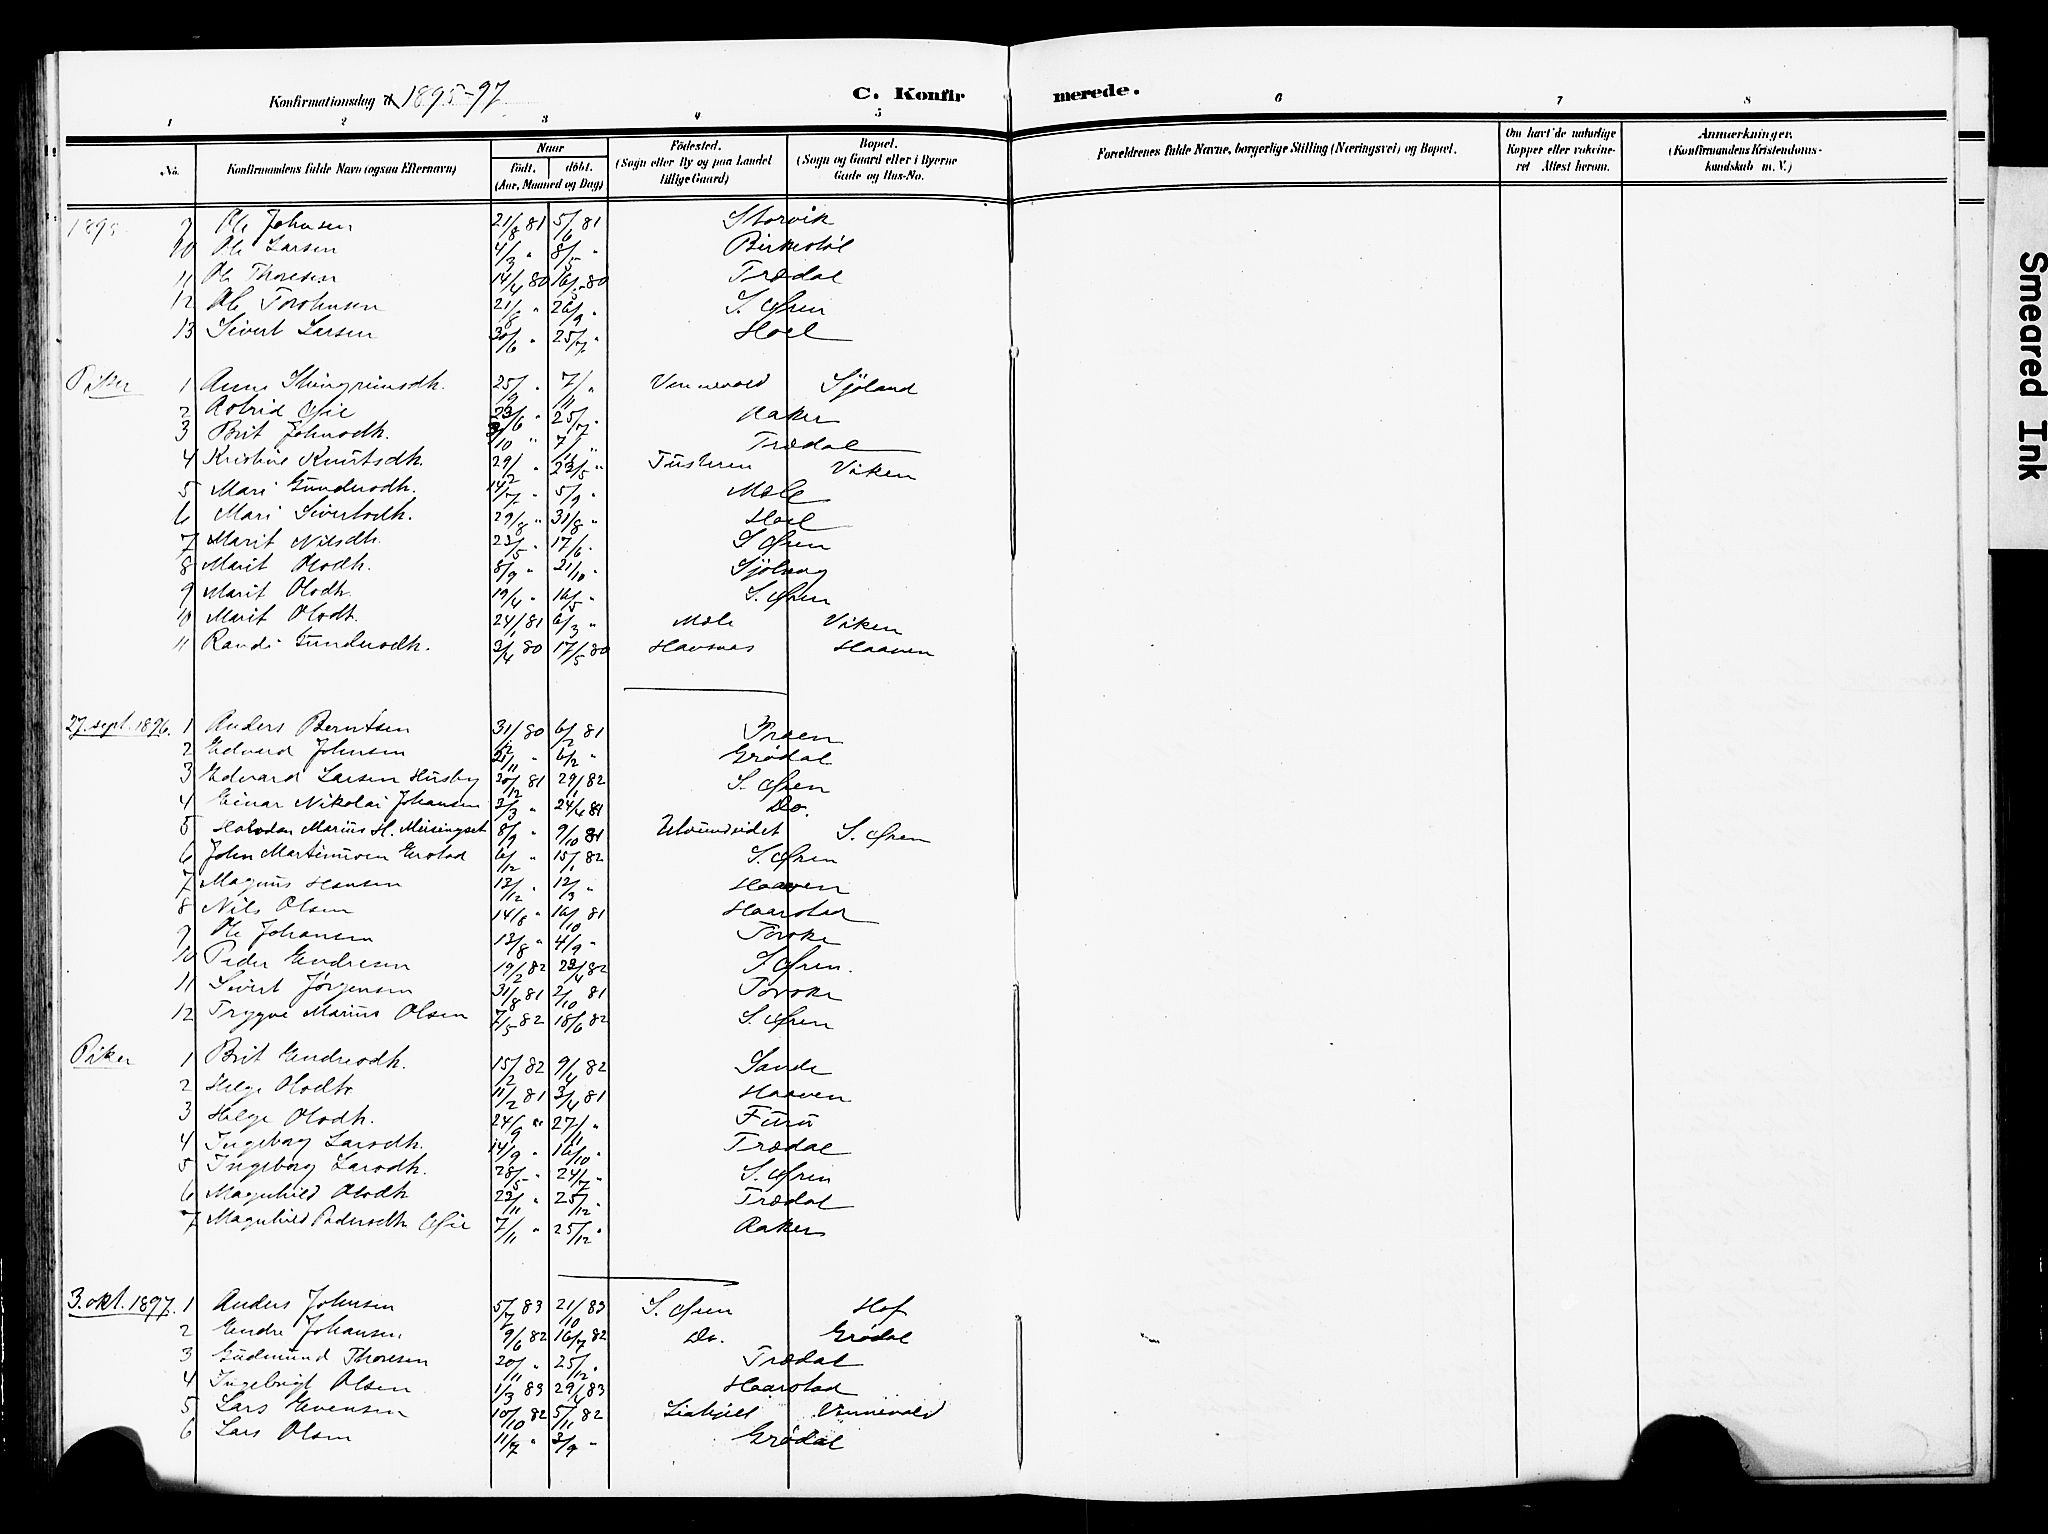 Konfirmationsdag d 1895-97.
C. Konfirmerede.
1 2 3 4 5 6 7 8
No. Konfirmandens fulde Navn (ogsaa Efternavn) Naar født. døbt. (Aar, Maaned og Dag) Fødested. (Sogn eller By og paa Landet tillige Gaard) Bopæl. (Sogn og Gaard eller i Byerne Gade og Hus-No. Forældrenes fulde Navne, borgerlige Stilling (Næringsvei) og Bopæl. Om havt de naturlige Kopper eller vakcineret Attest herom. Anmærkninger. (Konfirmandens Kristendomskundskab m. V.)
1895 9 Ole Johnsen 21/8 81 5/6 81 Storvik
10 Ole Larsen 4/3 " 8/5 " Birkestøl
11 Ole Thoresen 14/4 80 16/5 80 Trædal
12 Ole 21/8 " 26/9 " S. Øren
13 Sivert Larsen 30/6 " 25/7 " Hoel
Piker 1 Anne Steingrimsdh. 25/9 " 7/11 " Vennevold Sjøland
2 Astrid Øie 23/6 " 25/7 " Aaker
3 Brit Johnsdh. /10 " 7/11 " Trædal
4 Kristine Knutsdh. 29/2 " 23/5 " Tusteren Viken
5 Mari Gundersdh. 14/7 " 5/9 " Mæle
6 Mari Sivertsdh. 29/8 " 31/8 " Hoel
7 Marit Nilsdh. 23/5 " 17/6 " S Øren
8 Marit Olsdh. 8/9 " 21/10 " Sjølseng
9 Marit Olsdh. 19/4 " 16/5 " S. Øren
10 Marit Olsdt. 24/1 81 6/3 " Mæle Viken
11 Randi Gundersdh. 3/4 80 17/5 80 Havsnæs Haaven
27. sept. 1896. 1 Anders Berntsen 31/12 80 6/2 81
2 Edvard Johnsen 21/11 " 6/2 " Grødal
3 Edvard Larsen Husby 30/12 81 29/1 82 S. Øren
4 Einar Nikolai Johansen 3/3 " 24/4 81 Do.
5 Halvdan Marius H. Meisingset 8/9 " 9/10 81 Ulvundeidet S. Øren
6 John Martinusen Erstad 6/12 " 15/1 82 S. Øren
7 Magnus Hansen 13/12 " 12/3 " Haaven
8 Nils Olsen 14/8 " 16/10 81 Haarstad
9 Ole Johansen 13/8 " 4/9 " Torske
10 Peder Endresen 19/2 82 23/4 82 S Øren.
11 Sivert Jørgensen 31/8 81 2/10 81 Torske
12 Trygve Marius Olsen 7/5 82 18/6 82 S. Øren
Piker 1 Brit Endresdh. 15/2 82 9/4 82 Sande
2 Helge Olsdtr 11/2 81 3/4 81 Haaven
3 Helge Olsdh. 24/9 " 27/11 " Furu
4 Ingeborg Larsdh. 14/9 " 16/10 " Trædal
5 Ingeborg Larsdh. 28/5 " 24/7 " S. Øren
6 Magnhild Olsdh 23/11 " 25/12 " Trædal
7 Magnhild Pedersdh Øie 7/11 " 25/12 " Aaker
3. okt. 1897. 1 Anders Johnsen 5/7 83 21/10 83 S. Øren Hof
2 Endre Johansen 9/6 82 16/7 82 Do. Grødal
3 Gudmund Thoresen 20/11 " 25/12 " Trædal
4 Ingebrigt Olsen 1/3 83 29/4 83 Haarstad
5 Lars Evensen 10/10 82 5/11 82 Liahjell Vennevold
6 Lars Olsen 11/7 " 3/9 " Grødal
Smeared Ink